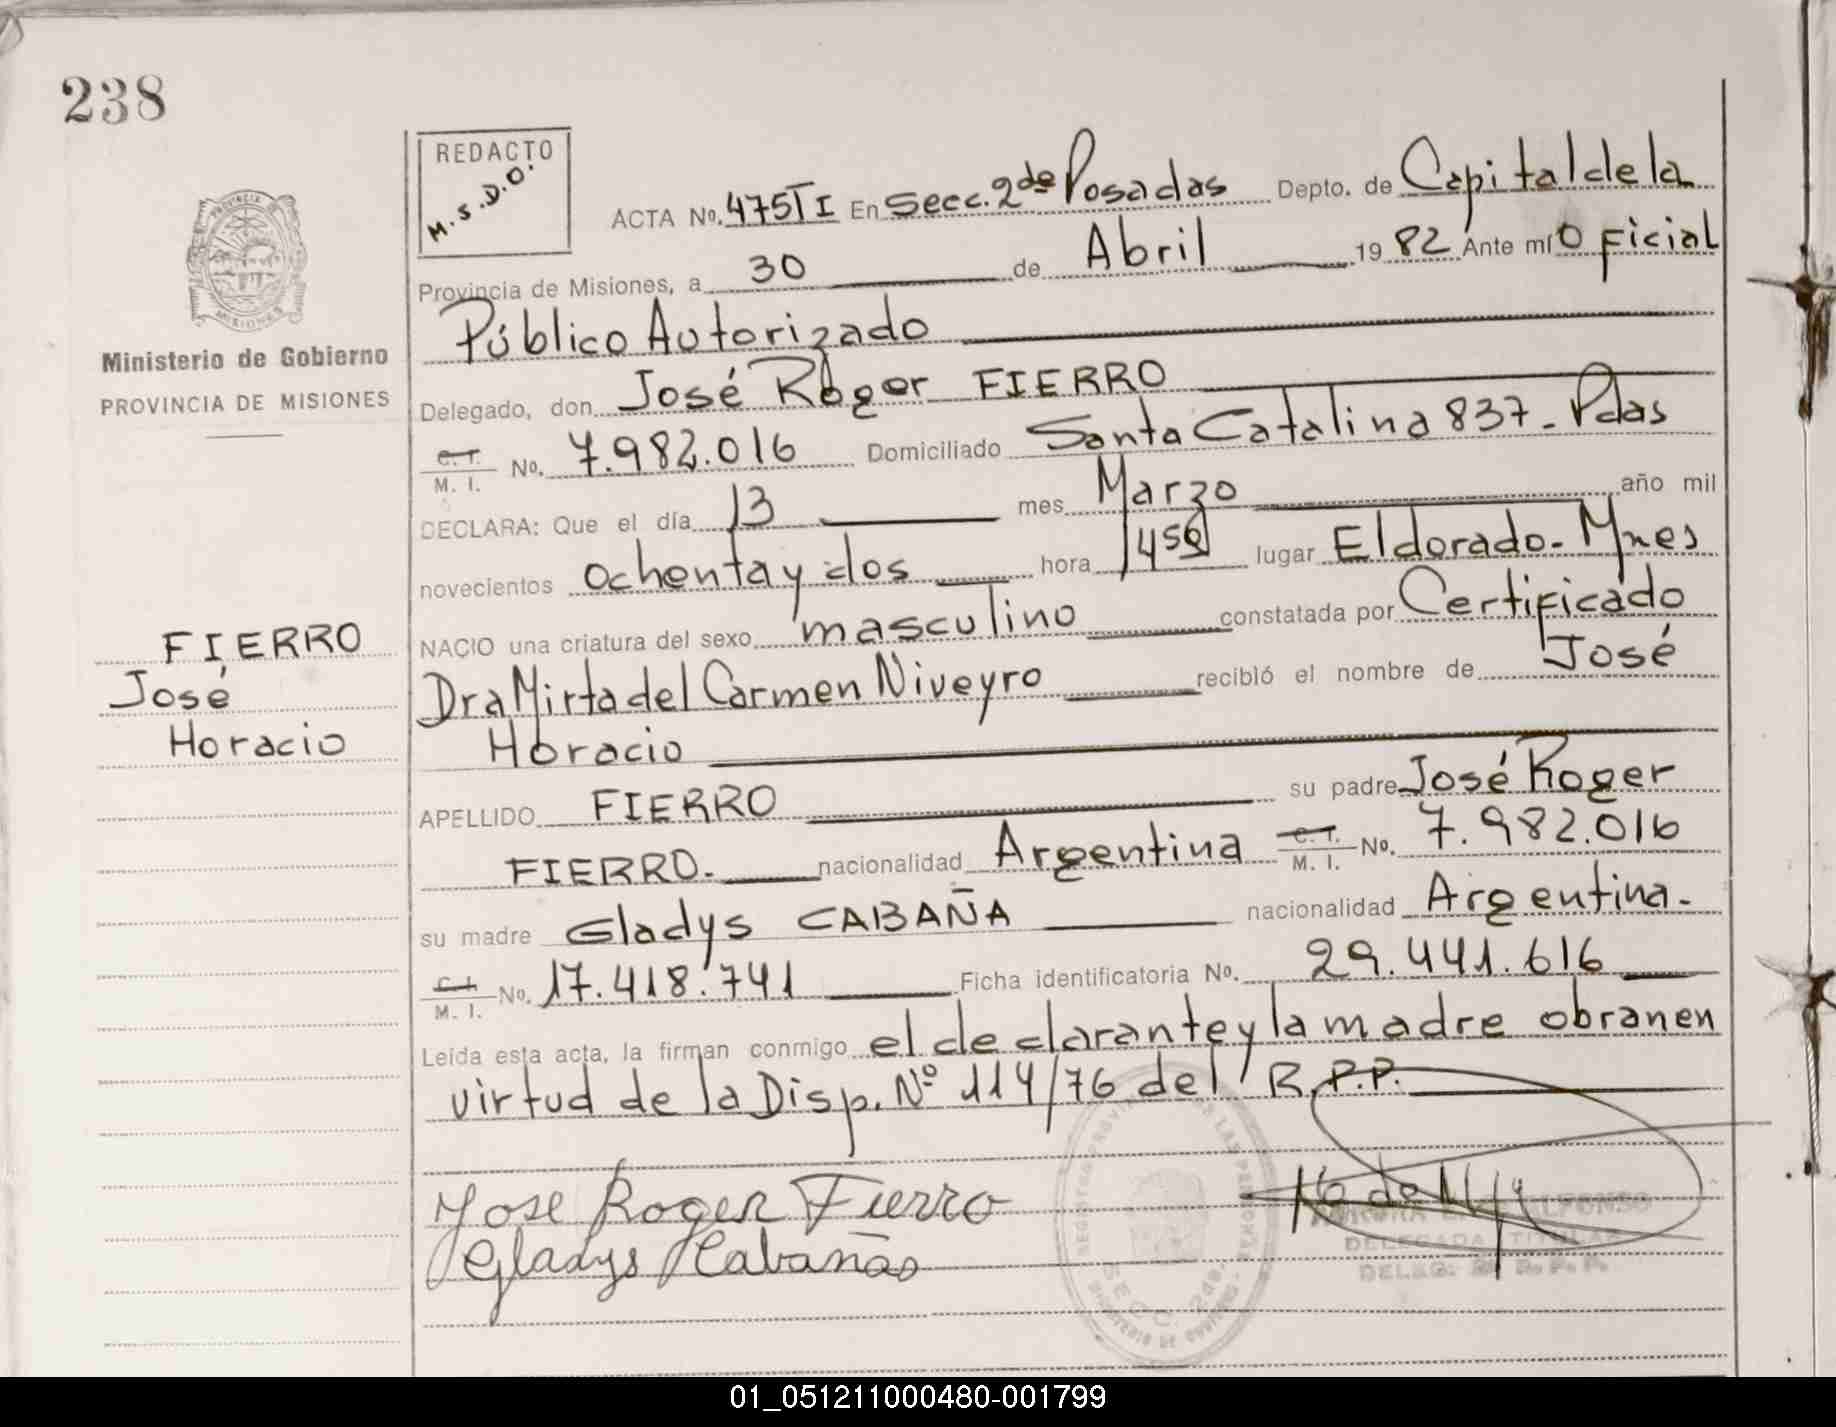 238
REDACTO
M.S.D.O.
PROVINCIA
MISIONES
Ministerio de Gobierno
PROVINCIA DE MISIONES
ACTA No. 475 TI En Secc. 2da Posadas Depto. de Capital de la
Provincia de Misiones, a 30 de Abril 1982 Ante mí Oficial
Público Autorizado
Delegado, don José Roger FIERRO
C. I. M. I. No. 7.982.016 Domiciliado Santa Catalina 837 - Pdas
DECLARA: Que el día 13 mes Marzo año mil
novecientos ochenta y dos hora 14 50 lugar Eldorado - Mnes
NACIO una criatura del sexo masculino constatada por Certificado
Dra Mirta del Carmen Niveyro recibió el nombre de José
Horacio
FIERRO
José
Horacio
APELLIDO FIERRO su padre José Roger
FIERRO. nacionalidad Argentina C. I. M. I. No. 7.982.016
su madre Gladys CABAÑA nacionalidad Argentina.
C. I. M. I. No. 17.418.741 Ficha identificatoria No. 29.441.616
Leída esta acta, la firman conmigo el declarante y la madre obran en
virtud de la Disp. Nº 114/76 del R.P.P.
Jose Roger Fierro
Gladys Cabañas
ALFONSO
DELEGADA TITULAR
DELEG. R. P. P.
SECC. 2da.
01_051211000480-001799